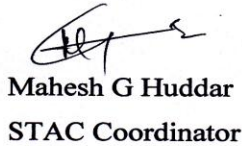 Mahesh G Huddar
STAC Coordinator